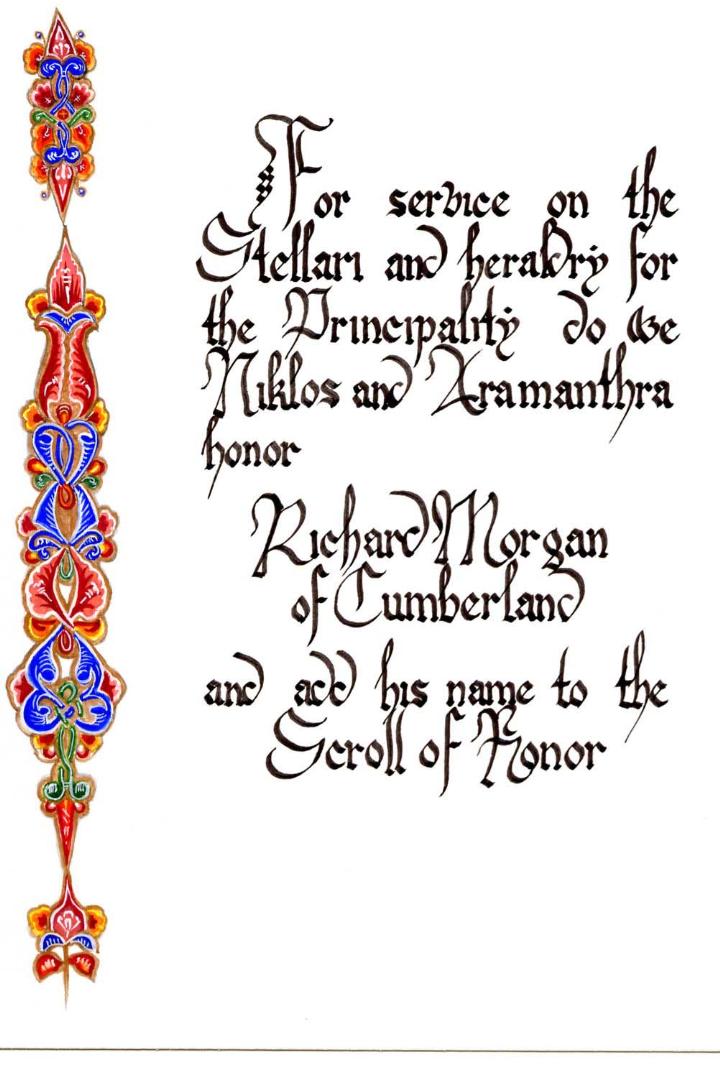 For service on the
Stellari and heraldry for
the Principality do we
Niklos and Aramanthra
honor
Richard Morgan
of Cumberland
and add his name to the
Scroll of Honor